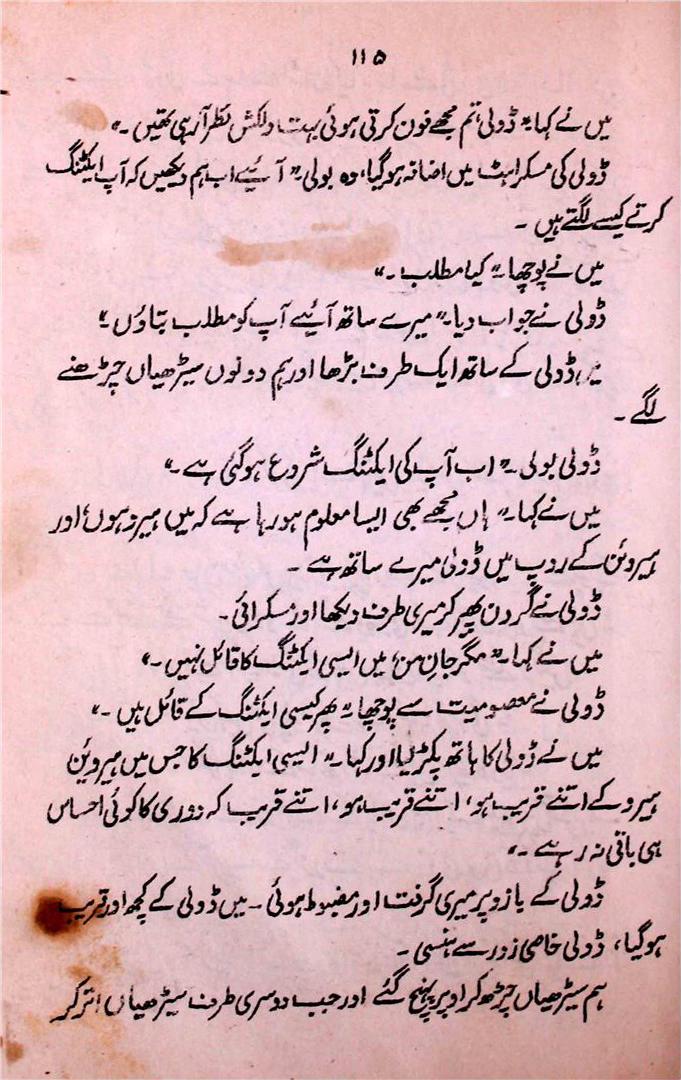 ۱۱۵
میں نے کہا۔" ڈولی، تم مجھے فون کرتی ہوئی بہت دلکش نظر آ رہی تھیں۔"
ڈولی کی مسکراہٹ میں اضافہ ہو گیا، وہ بولی۔" آئیے اب ہم دیکھیں کہ آپ ایکٹنگ
کرتے کیسے لگتے ہیں۔
میں نے پوچھا۔" کیا مطلب۔"
ڈولی نے جواب دیا۔" میرے ساتھ آئیے آپ کو مطلب بتاؤں۔"
میں ڈولی کے ساتھ ایک طرف بڑھا اور ہم دونوں سیڑھیاں چڑھنے
لگے۔
ڈولی بولی۔" اب آپ کی ایکٹنگ شروع ہو گئی ہے۔"
میں نے کہا۔" ہاں مجھے بھی ایسا معلوم ہو رہا ہے کہ میں ہیرو ہوں، اور
ہیروئن کے روپ میں ڈولی میرے ساتھ ہے۔
ڈولی نے گردن پھیر کر میری طرف دیکھا اور مسکرائی۔
میں نے کہا۔" مگر جانِ من، میں ایسی ایکٹنگ کا قائل نہیں۔"
ڈولی نے معصومیت سے پوچھا۔" پھر کیسی ایکٹنگ کے قائل ہیں۔"
میں نے ڈولی کا ہاتھ پکڑ لیا اور کہا۔" ایسی ایکٹنگ کا جس میں ہیروئن
ہیرو کے اتنے قریب ہو، اتنے قریب ہو، اتنے قریب کہ دوری کا کوئی احساس
ہی باقی نہ رہے۔"
ڈولی کے بازو پر میری گرفت اور مضبوط ہوئی۔ میں ڈولی کے کچھ اور قریب
ہو گیا، ڈولی خاصی زور سے ہنسی۔
ہم سیڑھیاں چڑھ کر اوپر پہنچ گئے اور جب دوسری طرف سیڑھیاں اتر کر